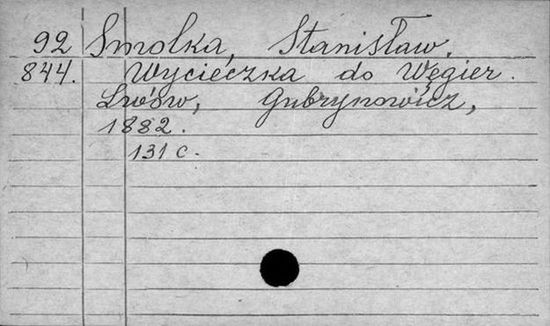 92 Smolka, Stanisław.
844. Wycieczka do Węgier.
Lwów, Gubrynowicz,
1882.
131 c.